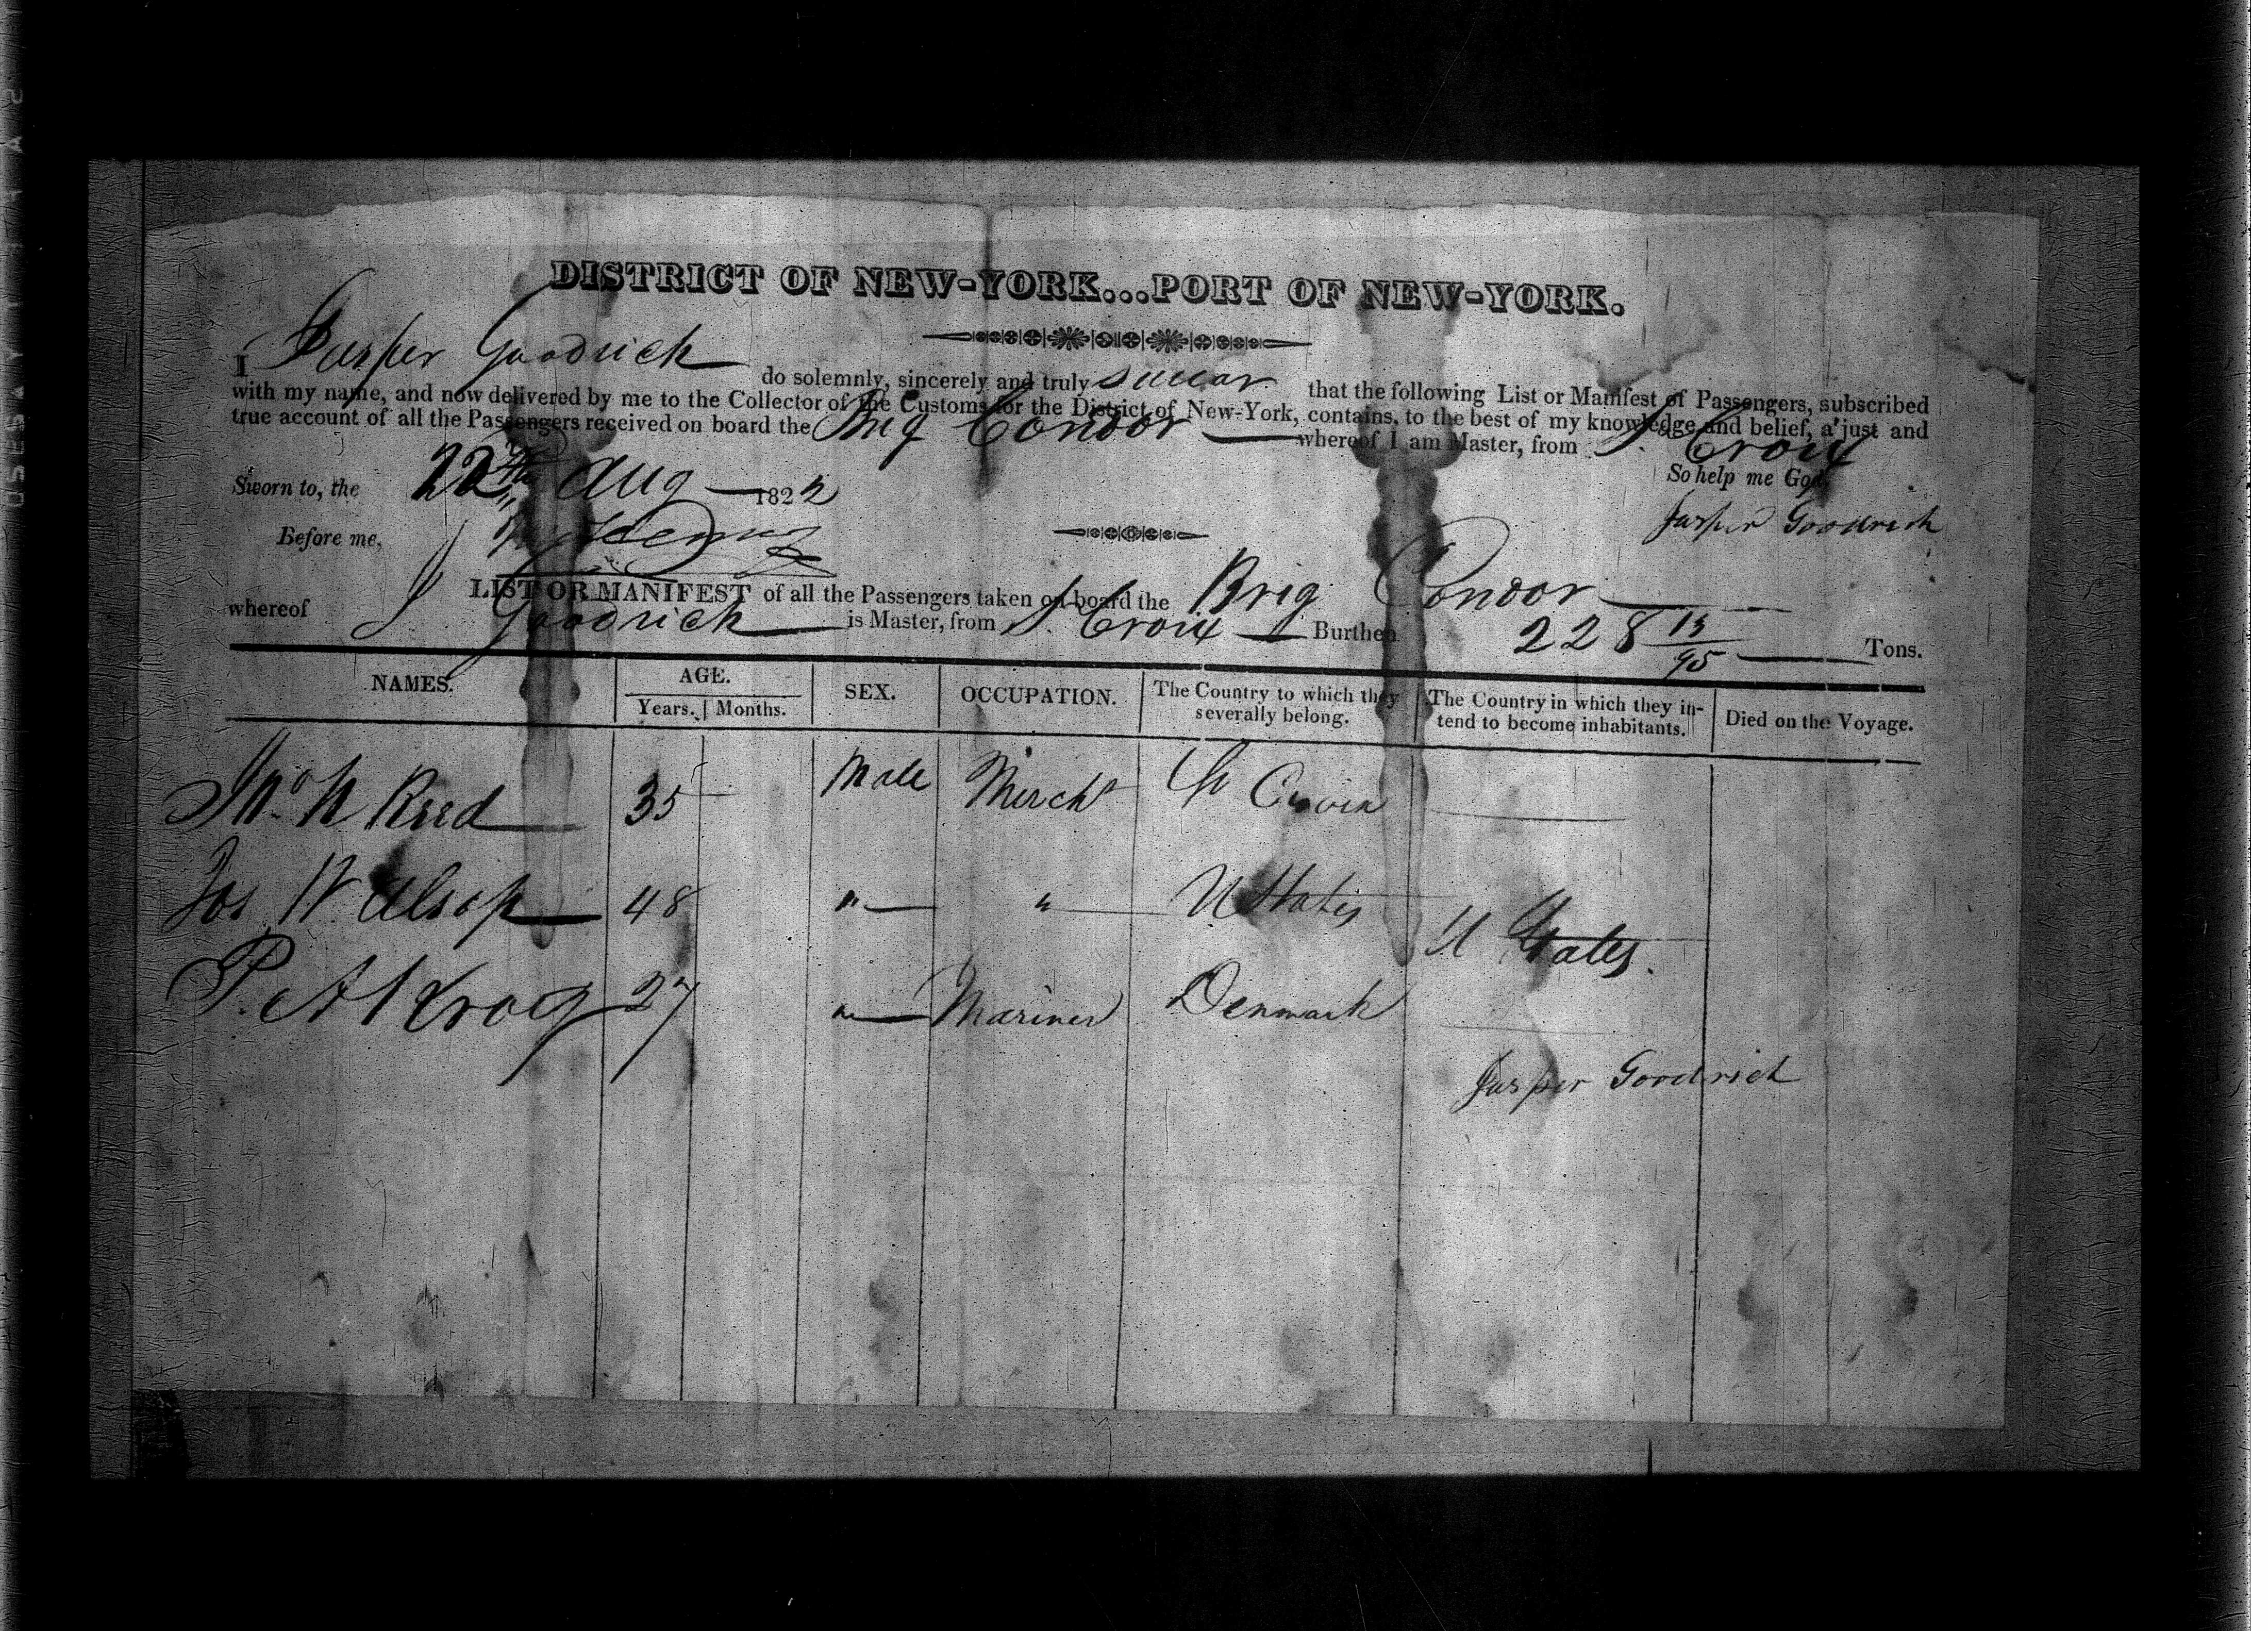 DISTRICT OF NEW-YORK...PORT OF NEW-YORK.
I Jasper Goodrich do solemnly, sincerely and truly swear that the following List or Manifest of Passengers, subscribed
with my name, and now delivered by me to the Collector of the Customs for the District of New-York, contains, to the best of my knowledge and belief, a just and
true account of all the Passengers received on board the Brig Condor whereof I am Master, from St. Croix
So help me God.
Sworn to, the 22th Aug 1822
Jasper Goodrich
Before me,
LIST OR MANIFEST of all the Passengers taken on board the Brig Condor
whereof J Goodrich is Master, from St. Croix Burthen 228 13/95 Tons.
NAMES. AGE. SEX. OCCUPATION. The Country to which they severally belong. The Country in which they intend to become inhabitants. Died on the Voyage.
Years. Months.
Jno. N Reed 35 Male Mercht St Croix
Jos W Alsop 48 " " U States U States.
P. A Krog 27 " Mariner Denmark
Jasper Goodrich